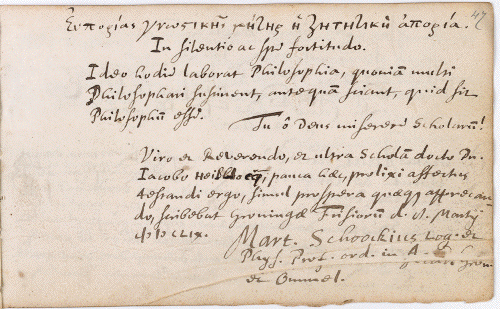 47
Ευπορίας γνωστικῆς ἡ ζητητικὴ ἀπορία.
In silentio ac spe fortitudo.
Ideo hodie laborat Philosophia, quoniã multi
Philosophari sustinent, antequã sciant, quid sit
Philosophũ esse.
Tu ô Deus miserere Scholarũ!
Viro et Reverendo, et ultra Scholã docto Dn.
Iacobo Heiblocq, pauca hæc, prolixi affectus
testandi ergo, simul prospera quæq; apprecan
do, scribebat Groningæ Frisiorum d. Martij
MART. Schoockius Log. et
Phys. Prof. ord. in A.
et Ommel.